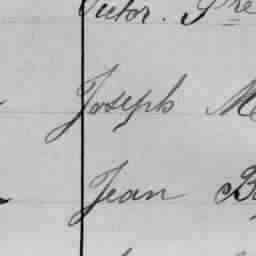 Victor. Pre
Joseph M
Jean B